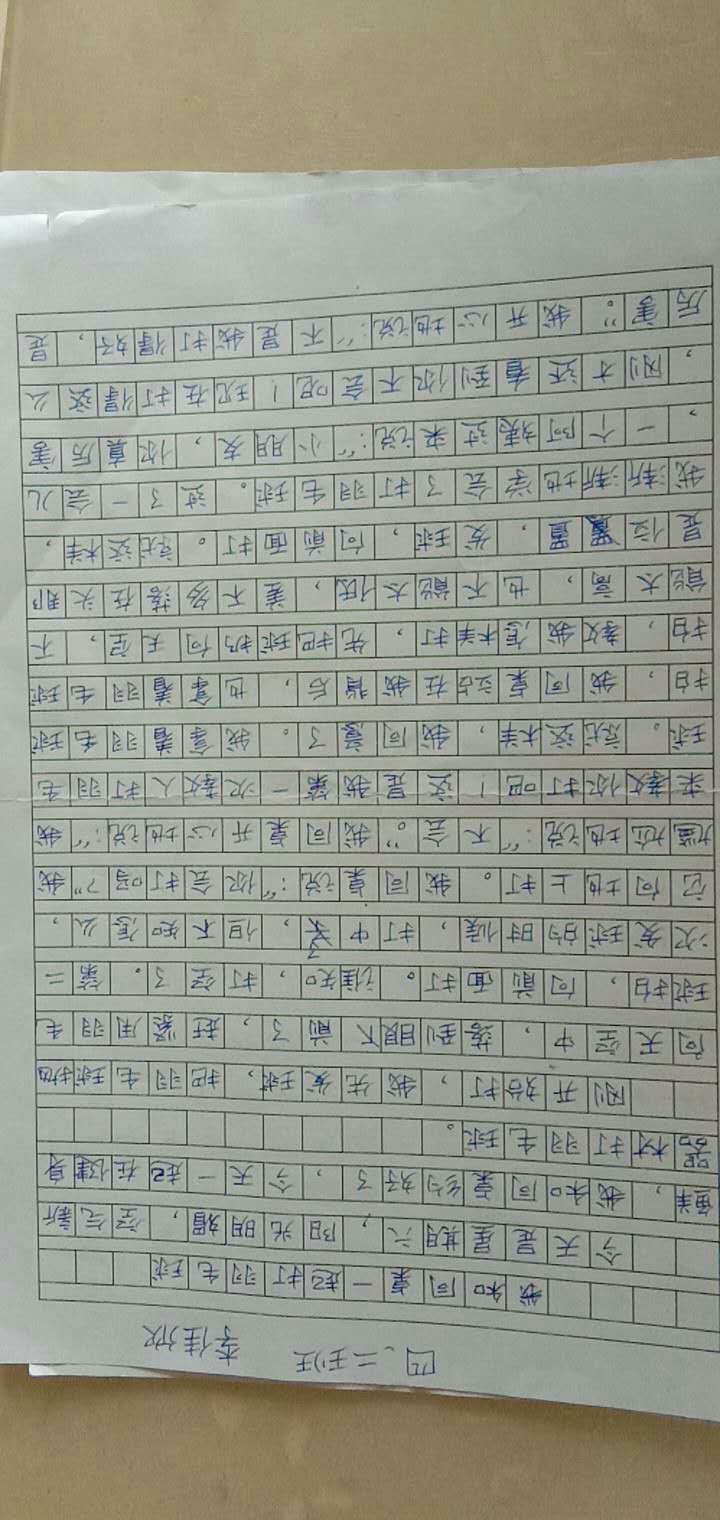 四、二班 李佳欣
我和同桌一起打羽毛球
今天是星期六，阳光明媚，空气新
鲜，我和同桌约好了，今天一起在健身
器材打羽毛球。
刚开始打，我先发球，把羽毛球抛
向天空中，落到眼前了，赶紧用羽毛
球拍，向前面打。谁知，打空了。第二
次发球的时候，打中了，但不知怎么，
它向地上打。我同桌说：“你会打吗？”我
尴尬地说：“不会。”我同桌开心地说：“我
来教你打吧！这是我第一次教人打羽毛
球。就这样，我同意了。我拿着羽毛球
拍，我同桌站在我背后，也拿着羽毛球
拍，教我怎样打，先把球扔向天空，不
能太高，也不能太低，差不多落在头那
是位置，发球，向前面打。就这样，
我渐渐地学会了打羽毛球。过了一会儿
，一个阿姨过来说：“小朋友，你真厉害
，刚才还看到你不会呢！现在打得这么
厉害。”我开心地说：“不是我打得好，是